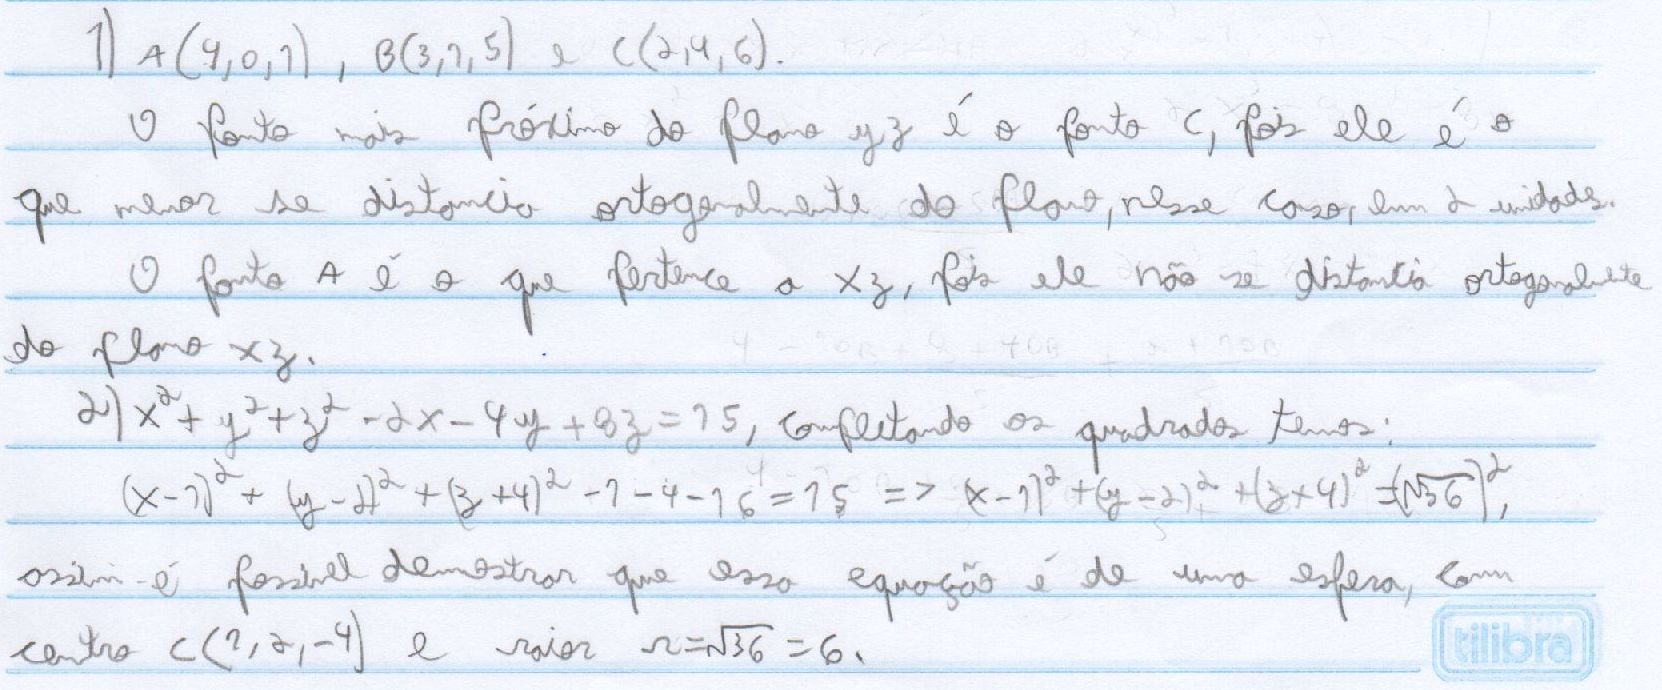 1) A(4,0,1), B(3,1,5) e C(2,4,6).
O ponto mais próximo do plano yz é o ponto C, pois ele é o
que menos se distancia ortogonalmente do plano, nesse caso, em 2 unidades.
O ponto A é o que pertence a xz, pois ele não se distancia ortogonalmente
do plano xz.
2) x² + y² + z² - 2x - 4y + 8z = 15, completando os quadrados temos:
(x-1)² + (y-2)² + (z+4)² - 1 - 4 - 16 = 15 => (x-1)² + (y-2)² + (z+4)² = (√36)²,
assim é possível demostrar que essa equação é de uma esfera, com
centro C(1,2,-4) e raior r=√36 = 6.
tilibra